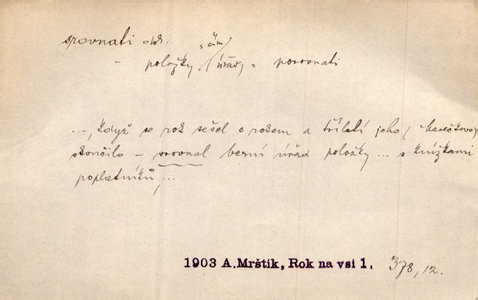 srovnati ob.
„čím
– položky (úřad) = porovnati
..., když se rok sešel s rokem a tříletí jeho (havlíčkovo)
skončilo – srovnal berní úřad položky ... s knížkami
poplatníků, ...
1903 A. Mrštík, Rok na vsi 1. 378, 12.